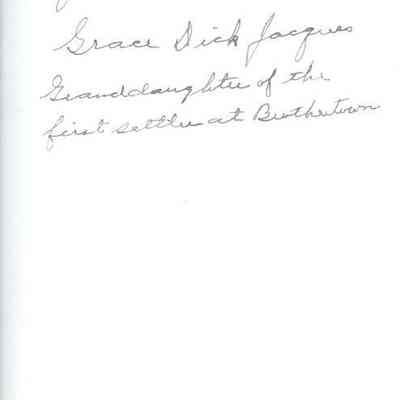 Grace Dick Jacques
Granddaughter of the
first settler at Brothertown